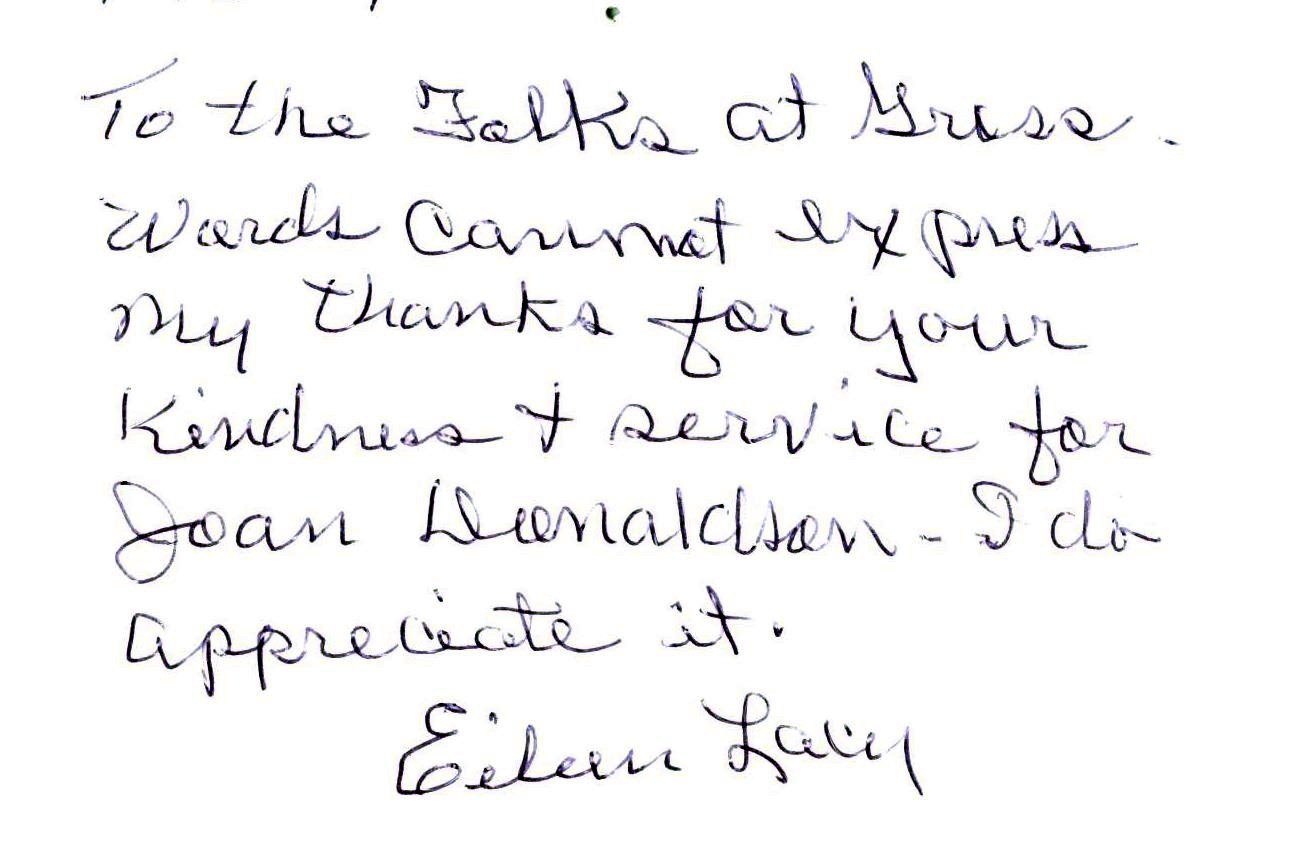 To the Folks at Griss.
Words Cannot express
My thanks for your
Kindness & service for
Joan Donaldson - I do
appreciate it.
Eileen